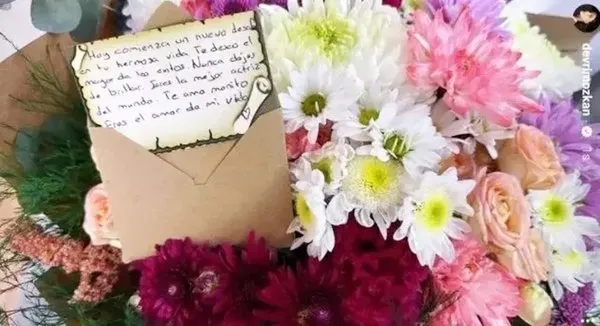 Hoy comienza un nuevo desafio
en tu hermosa vida Te deseo el
mayor de los exitos Nunca dejes
de brillar. Seras la mejor actriz
del mundo. Te ama manito
Eres el amor de mi vida
devrimozkan